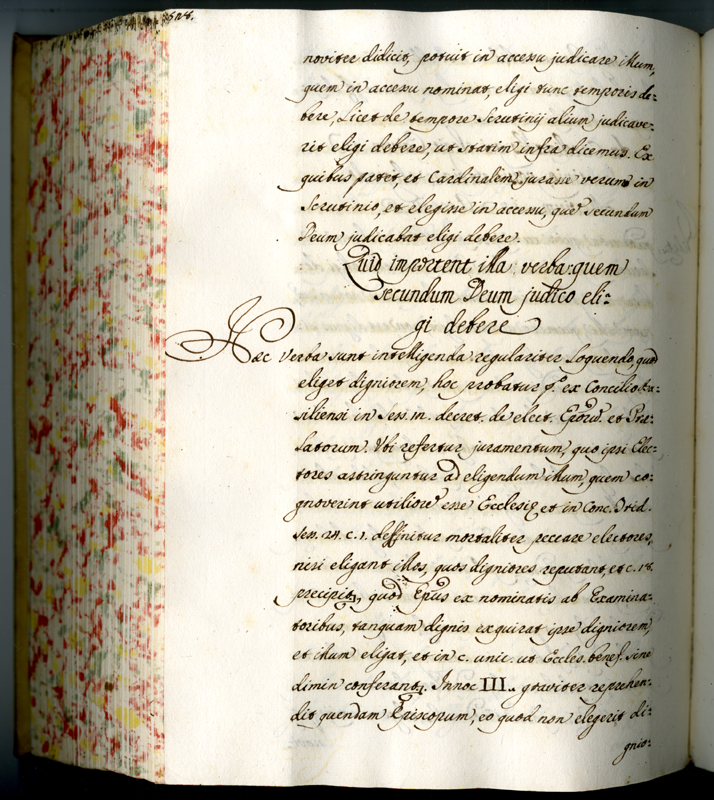 noviter didicit, potuit in accessu judicare illum,
quem in accessu nominat, eligi tunc temporis de=
bere, Licet de tempore Scrutinij alium judicave=
rit eligi debere, ut statim infra dicemus. Ex
quibus patet, et Cardinalem jurasse verum in
Scrutinio, et elegisse in accessu, que secundum
Deum judicabat eligi debere.
Quid importent illa verba: quem
secundum Deum judico eli=
gi debere
Hæc Verba sunt intelligenda regulariter loquendo, quod
eliget digniorem, hoc probatur p.º ex Concilio Ba=
siliensi in Sess. in. decret. de elect. Epōrū. et Præ=
latorum. Vbi refertur juramentum, quo ipsi Elec=
tores astringuntur ad eligendum illum, quem co=
gnoverint utiliorē esse Ecclesię et in Conc. Trid.
sess. 24. c. 1. deffinitur mortaliter peccare electores,
nisi eligant illos, quos digniores reputant, et c. 18.
precipit, quod Epūs ex nominatis ab Examina=
toribus, tanquam dignis exquirat ipse digniorem,
et illum eligat, et in c. unic. ut Eccles. benef. sine
dimin conferant. Innoc III. graviter reprehen=
dit quendam Episcopum, eo quod non elegerit di=
gnio=